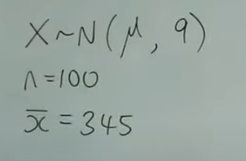 X~N(μ, 9)
n=100
x̄ = 345